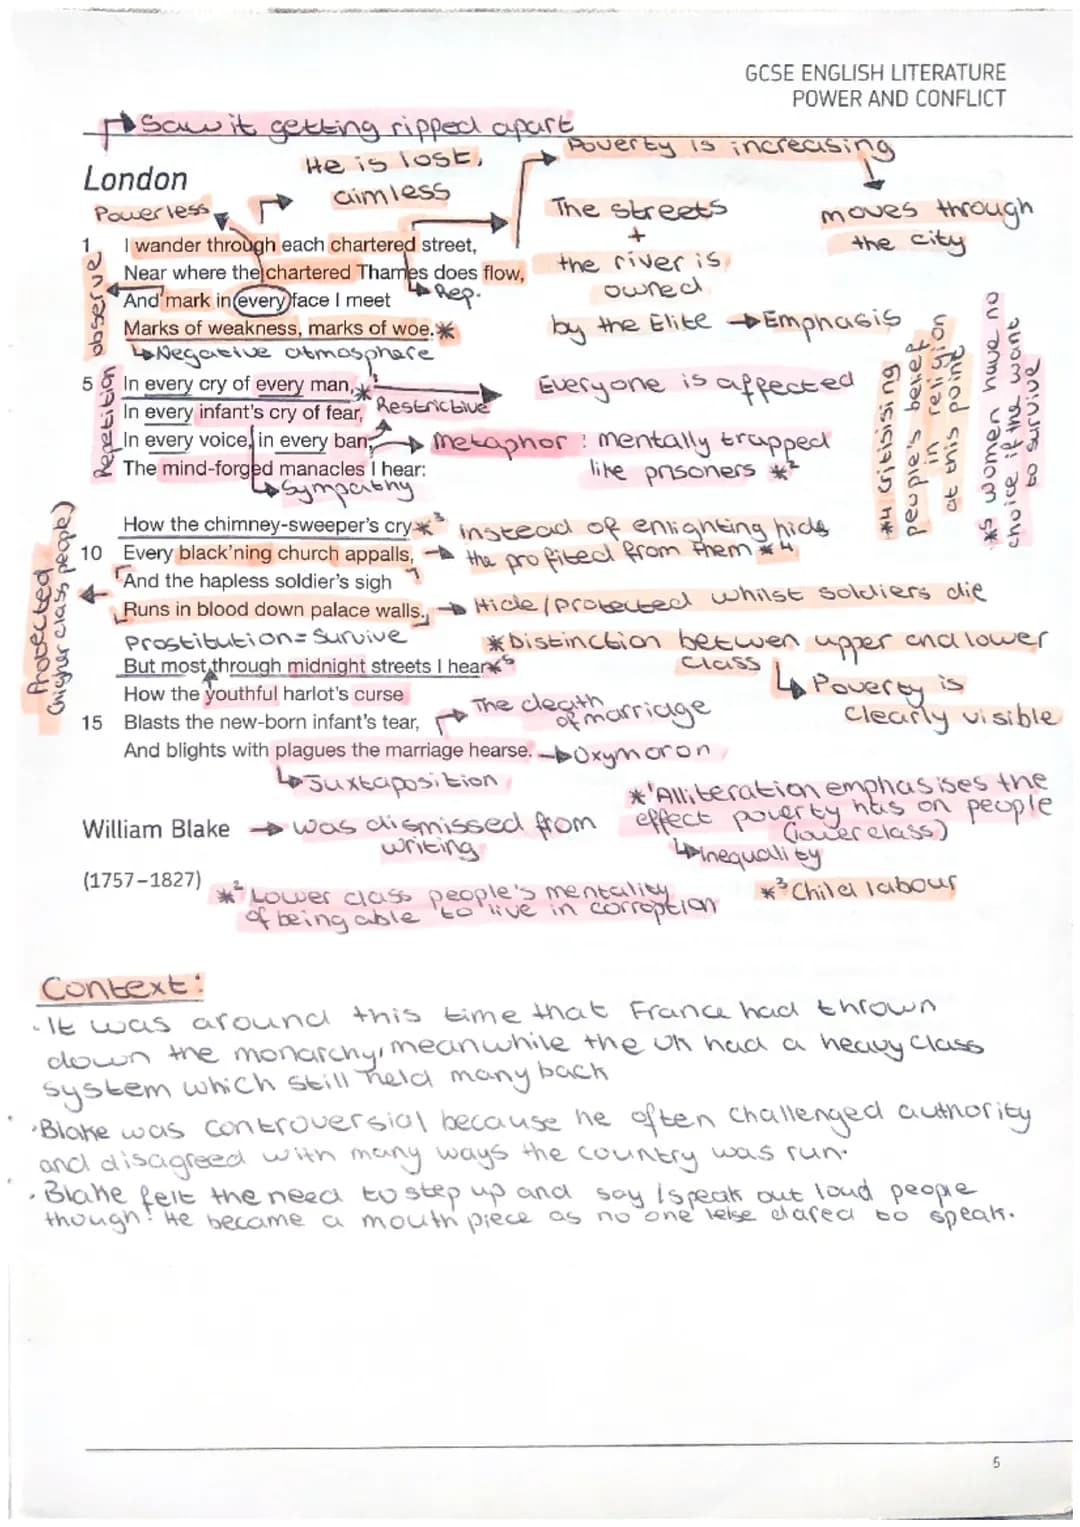 GCSE ENGLISH LITERATURE
POWER AND CONFLICT
Saw it getting ripped apart
He is lost,
aimless
Poverty is increasing
moves through
the city
London
Powerless
The streets
+
the river is
owned
by the Elite → Emphasis
observe
1 I wander through each chartered street,
Near where the chartered Thames does flow,
And mark in every face I meet
Rep.
Marks of weakness, marks of woe.*
Negative atmosphere
Repetition
5 In every cry of every man,*1
Everyone is affected
In every infant's cry of fear,
Restrictive
In every voice, in every ban,
metaphor: mentally trapped
like prisoners *2
The mind-forged manacles I hear:
Sympathy
*4 critisising
people's belief
in religion
at this point
*5 women have no
choice if the want
to survive
Protected
(higher class people)
How the chimney-sweeper's cry *3
instead of enlighting hids
10 Every black'ning church appalls,
the profited from them *4
And the hapless soldier's sigh
Runs in blood down palace walls.
Hide/Protected whilst soldiers die
Prostitution = Survive
*Distinction between upper and lower
class
Poverty is
clearly visible
But most through midnight streets I hear *5
How the youthful harlot's curse
The death
of marriage
15 Blasts the new-born infant's tear,
And blights with plagues the marriage hearse. → Oxymoron
Juxtaposition
*1 Alliteration emphasises the
effect poverty has on people
(lower class)
Inequality
William Blake → was dismissed from
writing
(1757–1827)
*2 Lower class people's mentality
of being able to live in corroption
*3 Child labour
Context:
· It was around this time that France had thrown
down the monarchy, meanwhile the UK had a heavy class
system which still held many back
· Blake was controversial because he often challenged authority
and disagreed with many ways the country was run.
· Blake felt the need to step up and say / speak out loud people
though! He became a mouth piece as no one else dared to speak.
5